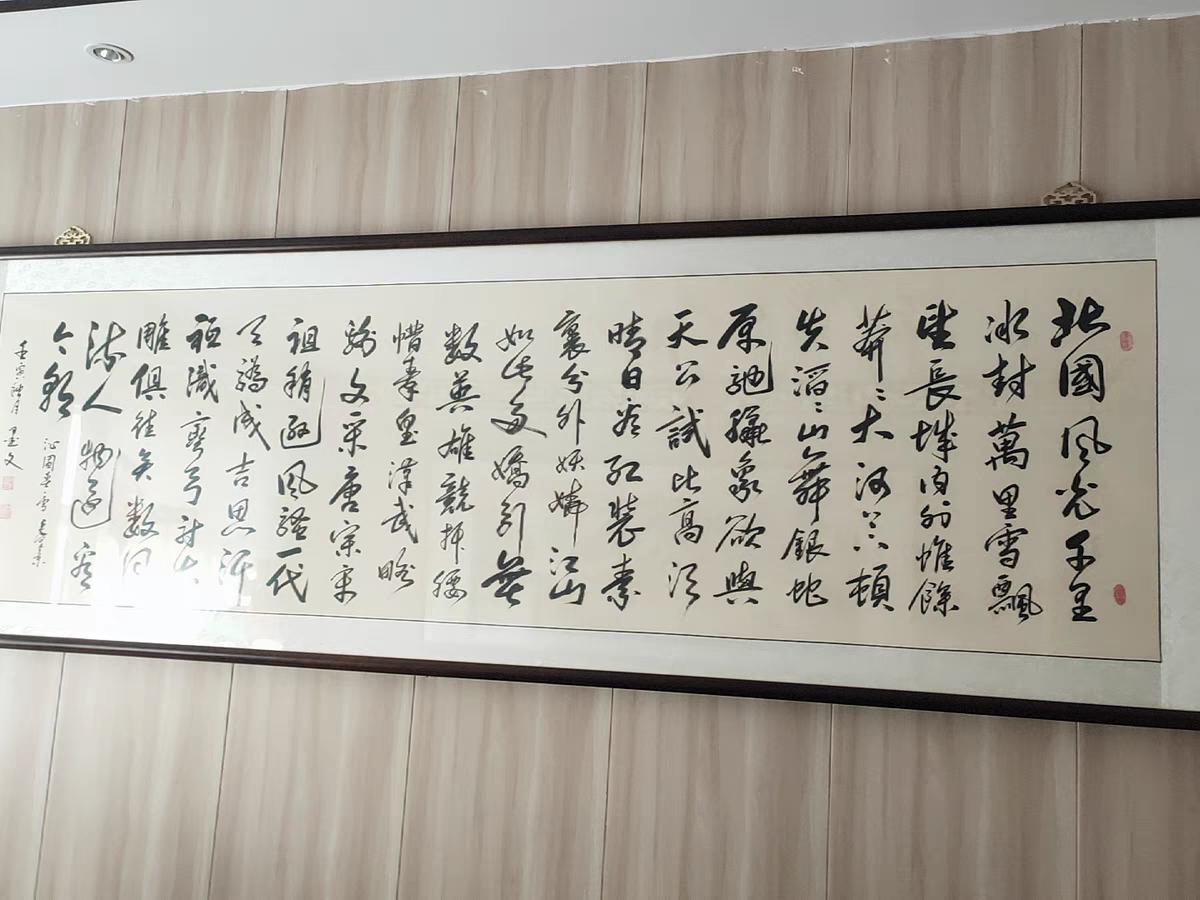 北國風光千里
冰封萬里雪飄
望長城內外惟餘
莽〻大河上下頓
失滔〻山舞銀蛇
原馳蠟象欲與
天公試比高須
晴日看紅裝素
裹分外妖嬈江山
如此多嬌引無
數英雄競折腰
惜秦皇漢武略
輸文采唐宗宋
祖稍遜風騷一代
天驕成吉思汗
祗識彎弓射大
雕俱往矣數風
流人物還看
今朝
沁園春雪
壬寅 月墨文